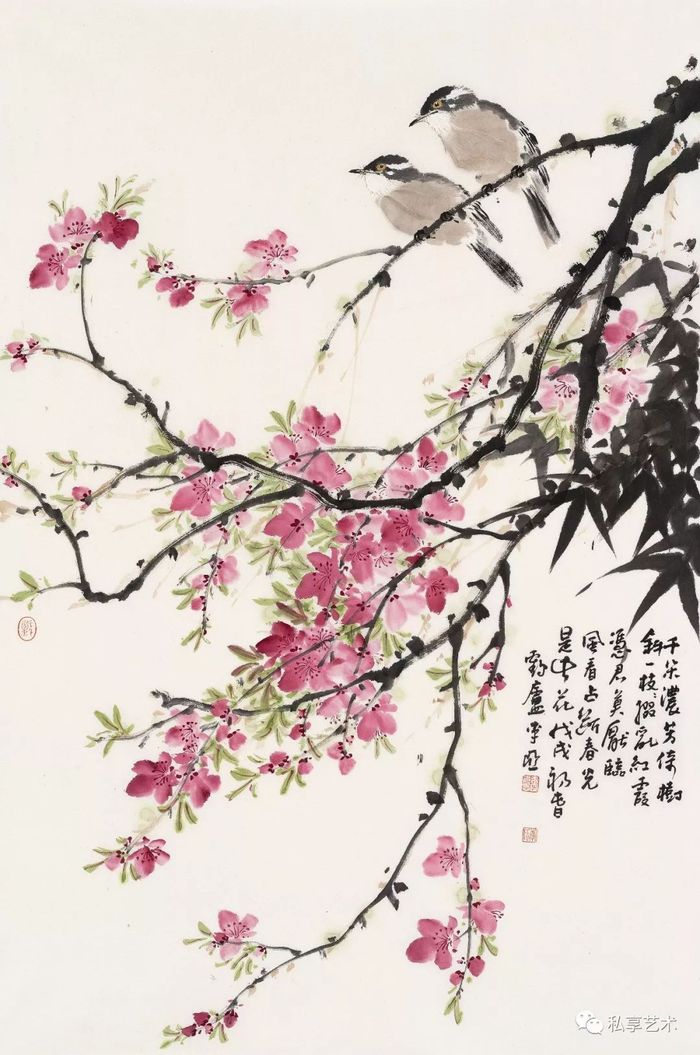 千朵濃芳倚樹
斜一枝綴亂紅霞
憑君莫厭臨
風看占斷春光
是此花戊戌初春
廬
私享艺术